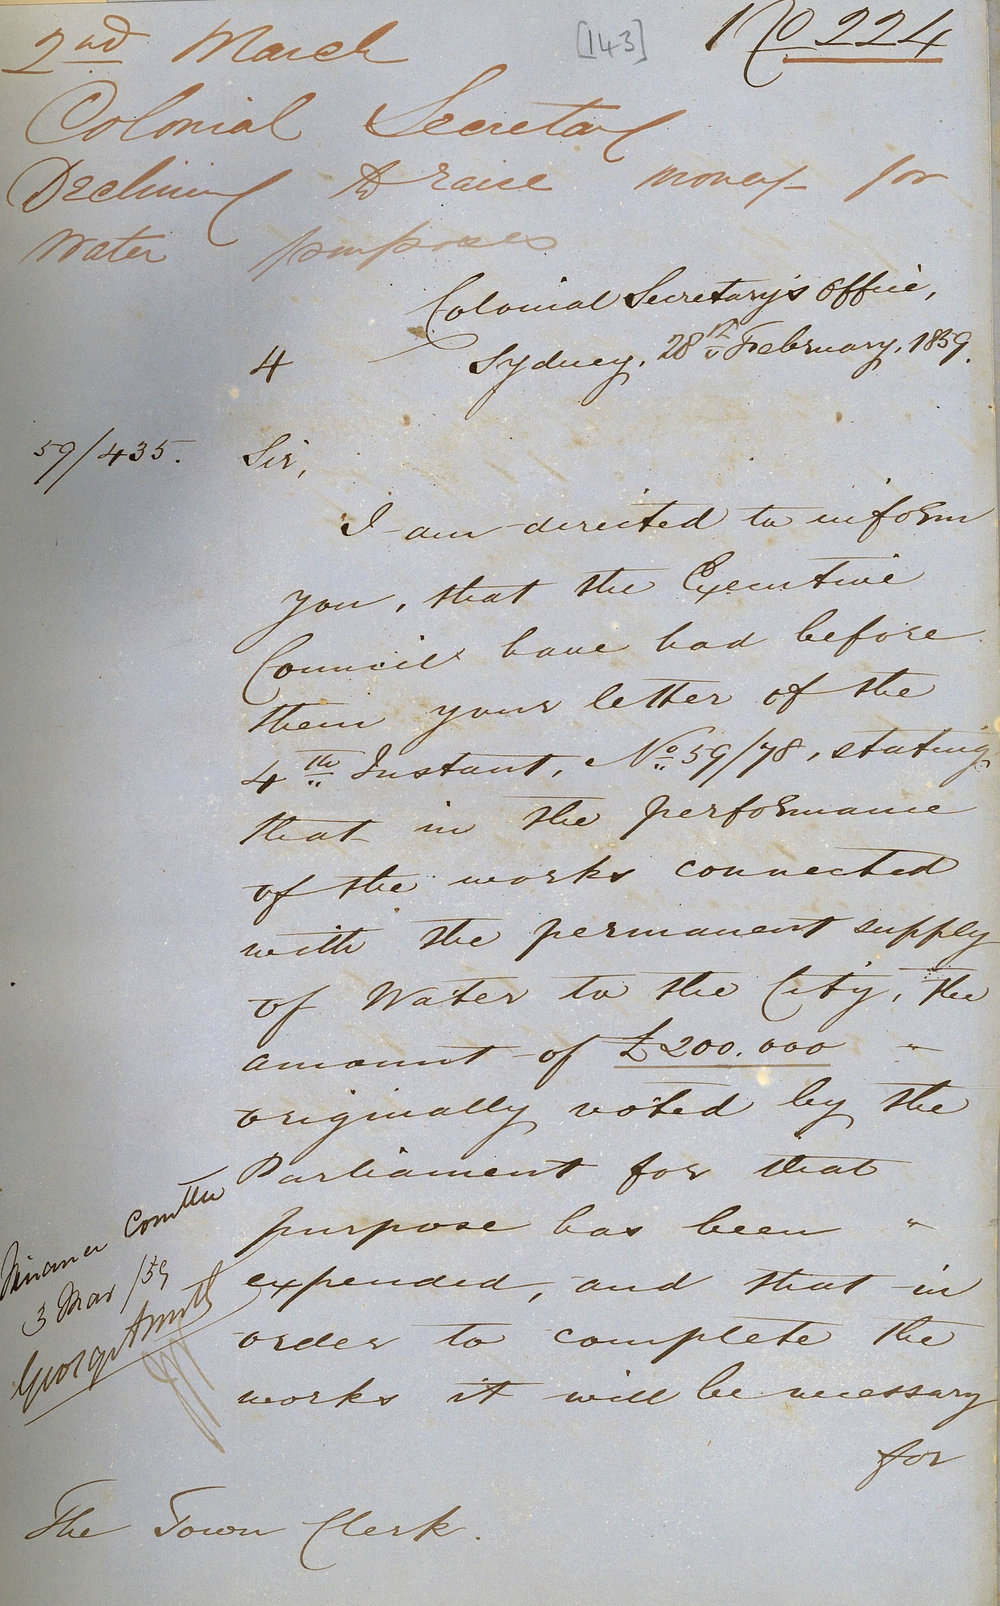 2nd March [143] No 224
Colonial Secretary
Declining to raise money for
Water purposes
Colonial Secretary's Office,
4 Sydney, 28th February, 1859.
59/435. Sir,
I am directed to inform
you, that the Executive
Council have had before
them your letter of the
4th Instant, No 59/78, stating
that in the performance
of the works connected
with the permanent supply
of Water to the City, the
amount of £200.000 "
originally voted by the
Parliament for that
purpose has been "
expended, and that in
order to complete the
works it will be necessary
for
Finance Comttee
3 Mar /59
George A Smith
The Town Clerk.